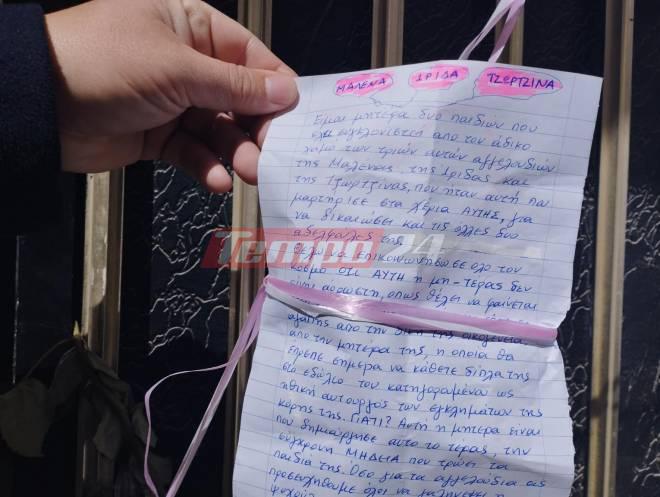 ΜΑΛΕΝΑ ΙΡΙΔΑ ΤΖΩΡΤΖΙΝΑ
Είμαι μητέρα δυο παιδιών που
έχει συγκλονιστεί απο τον άδικο
χαμό των τριών αυτών αγγελουδιών
της Μαλενας, της Ιριδας και
της Τζωρτζινας, που ήταν αυτή που
μαρτήρισε στα χέρια ΑΥΤΗΣ, για
να δικαιώσει και τις άλλες δυο
αδελφούλες της.
Θέλω να επικοινωνήσω σε όλο τον
κόσμο οτι ΑΥΤΗ η μη-τέρας δεν
είναι αρρωστη, οπως θέλει να φαίνεται
Tempo24
αγάπης απο την δική της οικογένεια
απο την μητέρα της, η οποία θα
έπρεπε σήμερα να κάθετε δίπλα της
στο εδώλιο του κατηγορουμένου ως
ηθική αυτουργός των εγκλημάτων της
κόρης της. ΓΙΑΤΙ? Αυτή η μητέρα είναι
που δημιούργησε αυτο το τέρας, την
σύγχρονη ΜΗΔΕΙΑ που τρώει τα
παιδιά της. Όσο για τα αγγελούδια ας
προσευχηθούμε όλοι να γαληνέψει η